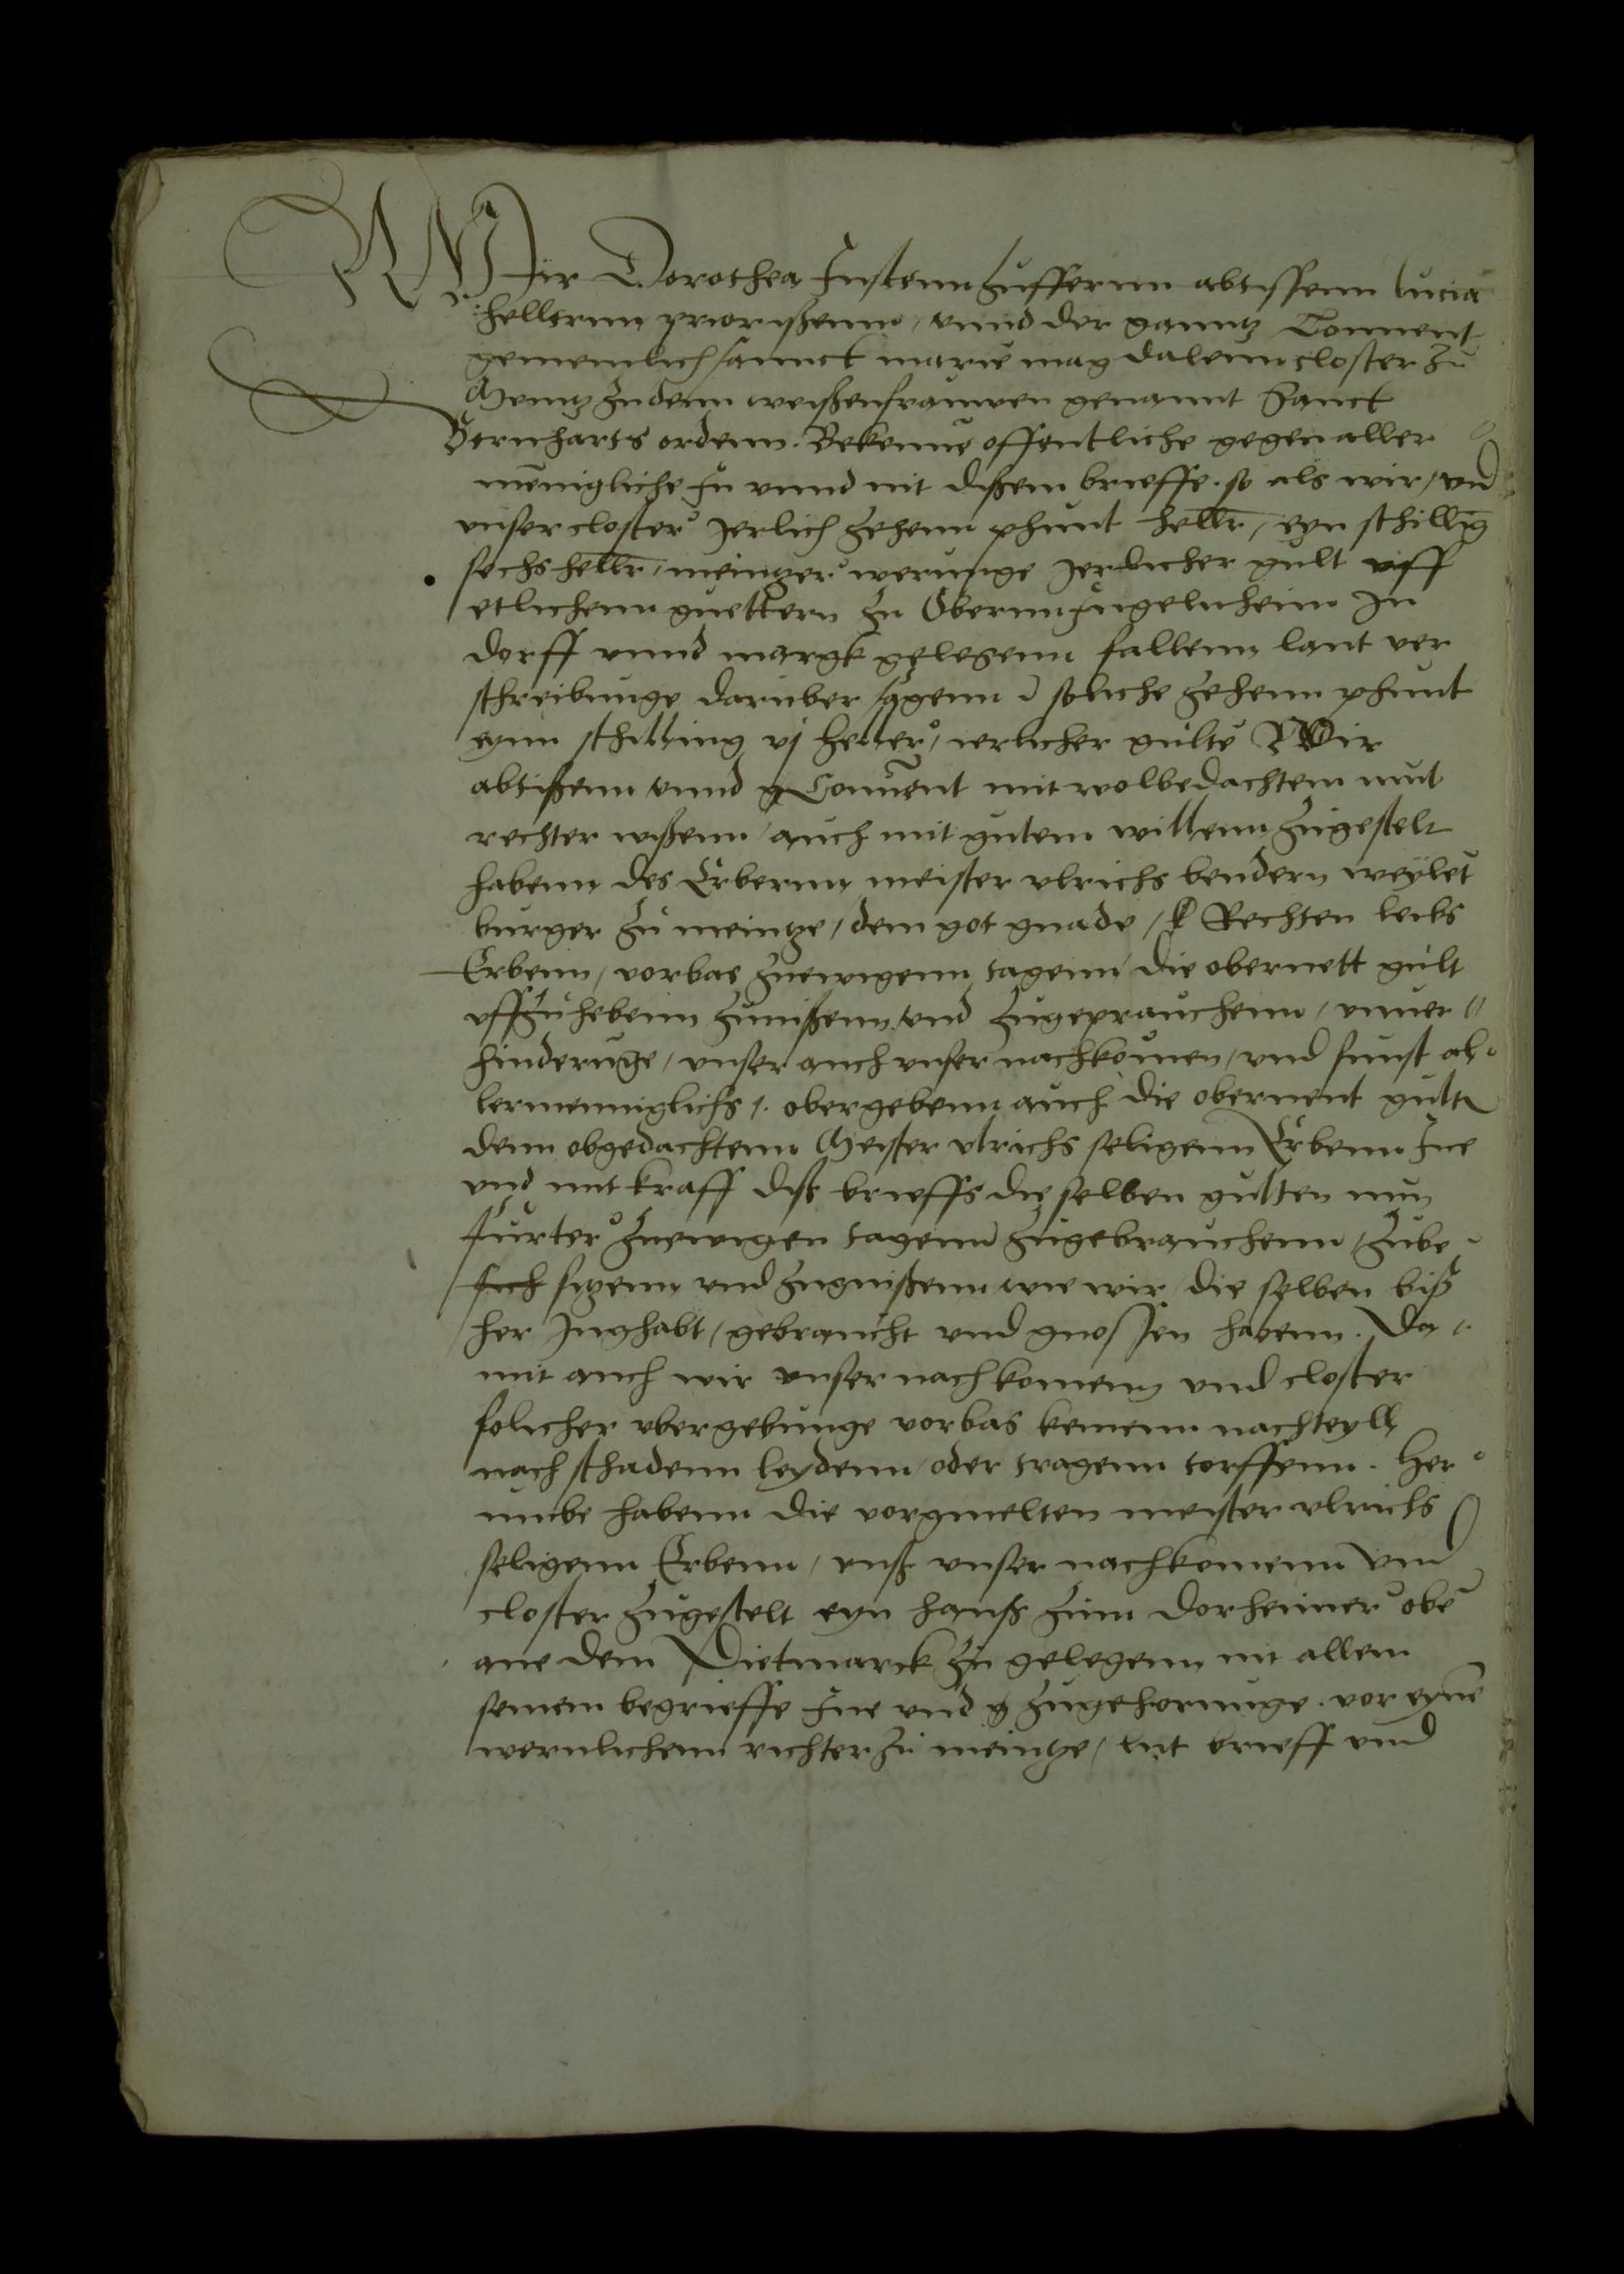 Wir Dorothea Instenn huffernn abtissenn lucia
hellernn priorißenn, vnnd der ganntz Conuent
gemeinlich sannct marie magdalenn closter zu
Meintz zu denn weißenfrauwen genannt Sanct
Bernharts ordenn. Bekenne offentliche gegen aller
menigliche In vnnd mit dißem brieffe. so als wir, vnd
vnser closter Jerlich zehenn phunt hellr, eyn schillig
sechs hellr, meintzer werunge Jerlicher gult vff
etlichenn guettern zu Obernn Ingelnheim In
dorff vnnd margk gelegenn fallenn laut ver
schreibunge daruber sagenn solliche zehenn phunt
eynn schilling vj heller, ierlicher gulte Wir
abtißenn vnnd Conuent mit wolbedachtem mut
rechter wißenn, auch mit gutem willenn zugestelt
habenn des Erbernn meister vlrichs bendern weylet
burger zu meintze, dem got gnade, Rechten leibs
Erbenn, vorbas zu ewigenn tagenn die obernett gult
vffzuhebenn zu nißenn vnd zugeprauchenn, vnuer
hinderuge, vnser auch vnser nachkomen, vnd sunst al
lermenniglichs, obergebenn auch die obernent gult
denn obgedachtenn Meister vlrichs seligenn Erbenn Ine
vnd mit krafft diß brieffs die selben gulten nun
furter zu ewigen tagenn zugebrauchenn, zube
sitzenn vnd zugnißenn wie wir die selben biß
her Inghabt, gebraucht vnd gnossen habenn. Da
mit auch wir vnser nachkomenn vnd closter
solicher vbergebunge vorbas keinenn nachteyll
nach schadenn leydenn, oder tragenn torffenn. Her
umbe habenn die vorgmelten meister vlrichs
seligenn Erbenn, vnß vnser nachkomenn vnd
closter zugestelt eyn hauß zum dorheimer obe
ane dem Dietmarck zu gelegenn mit allem
seinem begrieffe Ine vnd zugehorunge. vor eyne
werntlichenn richter zu meintze, lut brieff vnd